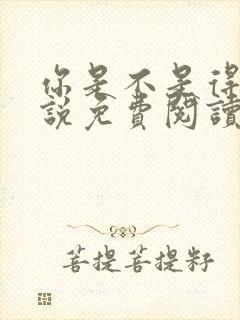 你是不是得
說免費閱讀
菩提菩提籽